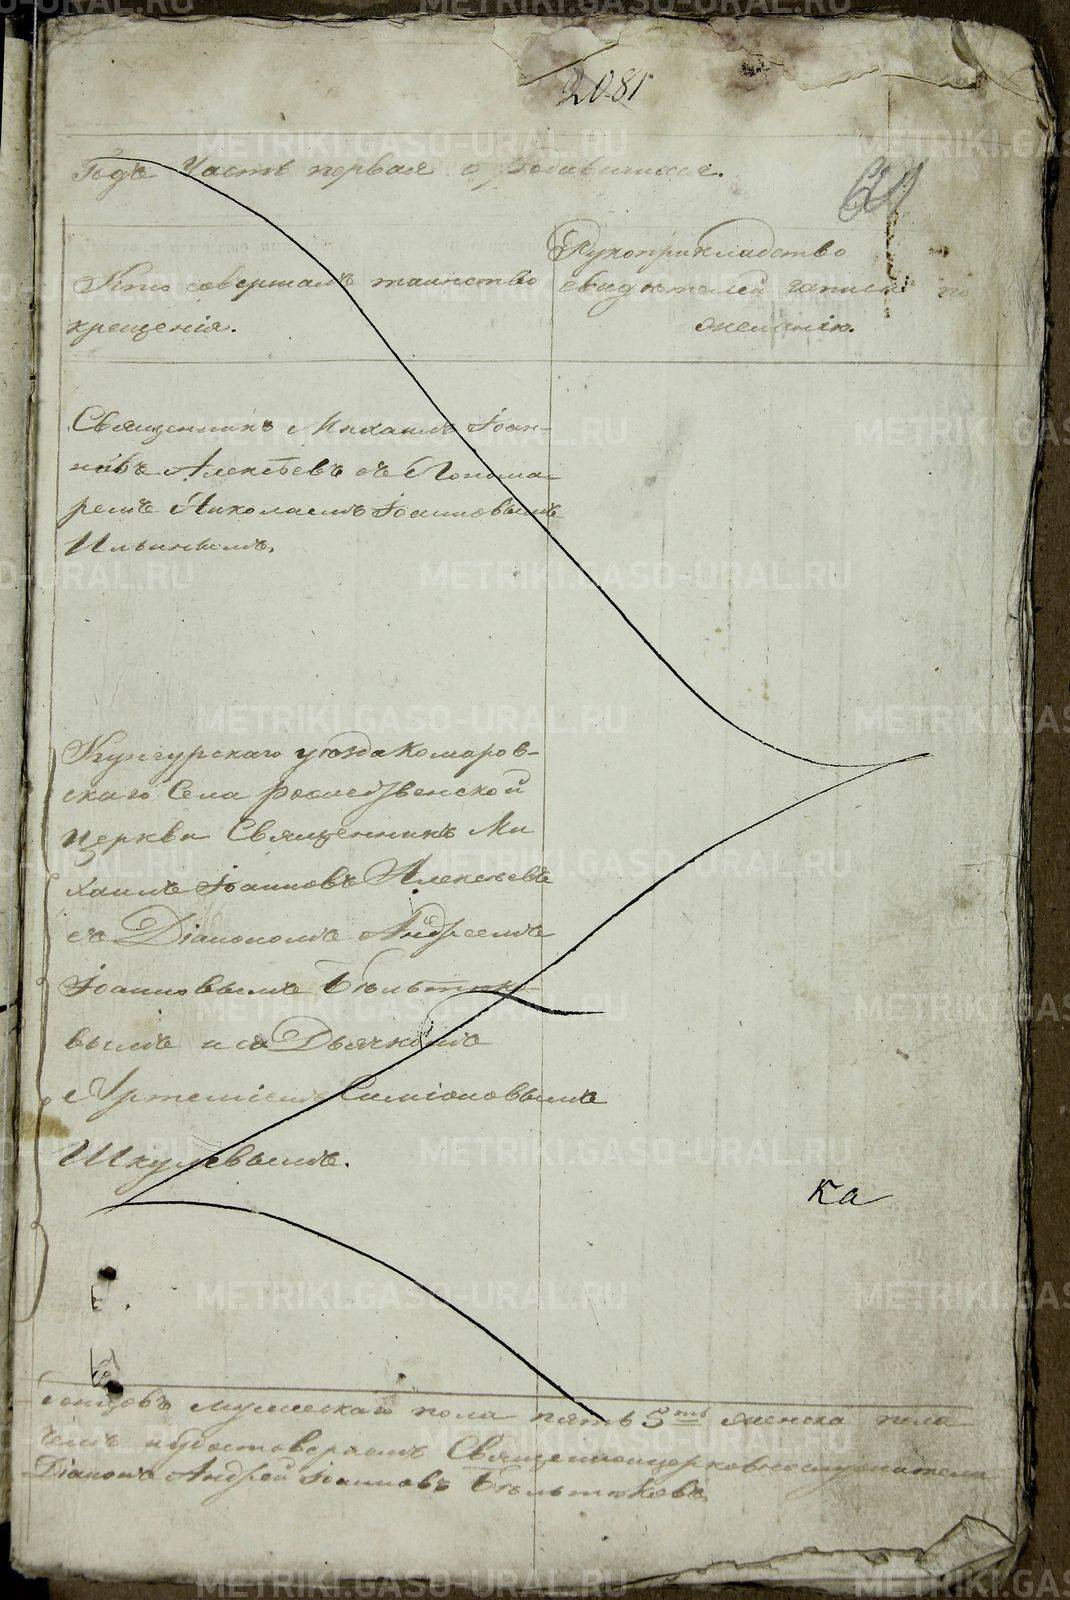 2081
Годъ Часть первая о родившихся.
Кто совершалъ таинство
крещенія.
Рукоприкладство
свидѣтелей записи по
желанію.
Священникъ Михаилъ Іоан-
новъ Алексѣевъ съ Понома-
ремъ Николаемъ Іоанновымъ
Ильинымъ.
Кунгурскаго уѣзда Комаров-
скаго Села Рождественской
церкви Священникъ Ми
хаилъ Іоанновъ Алексѣевъ
съ Діакономъ Андреемъ
Іоанновымъ Бѣльтюко-
вымъ и съ Дьячкомъ
Артеміемъ Симіоновымъ
Шкулевымъ.
ка
мужескаго пола пять 5ть женска пола
чемъ и удостовѣряемъ Священноцерковнослужители
Діаконъ Андрей Іоанновъ Бѣльтюковъ
METRIKI.GASO-URAL.RU